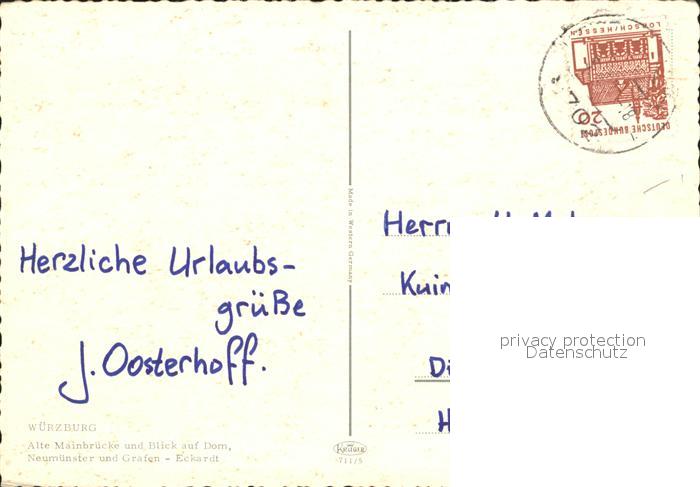 Herzliche Urlaubs-
grüße
J. Oosterhoff.
WÜRZBURG
Alte Mainbrücke und Blick auf Dom,
Neumünster und Grafen - Eckardt
Made in Western Germany
KRÜGER
711/5
LORSCH/HESSEN
20
DEUTSCHE BUNDESPOST
privacy protection
Datenschutz